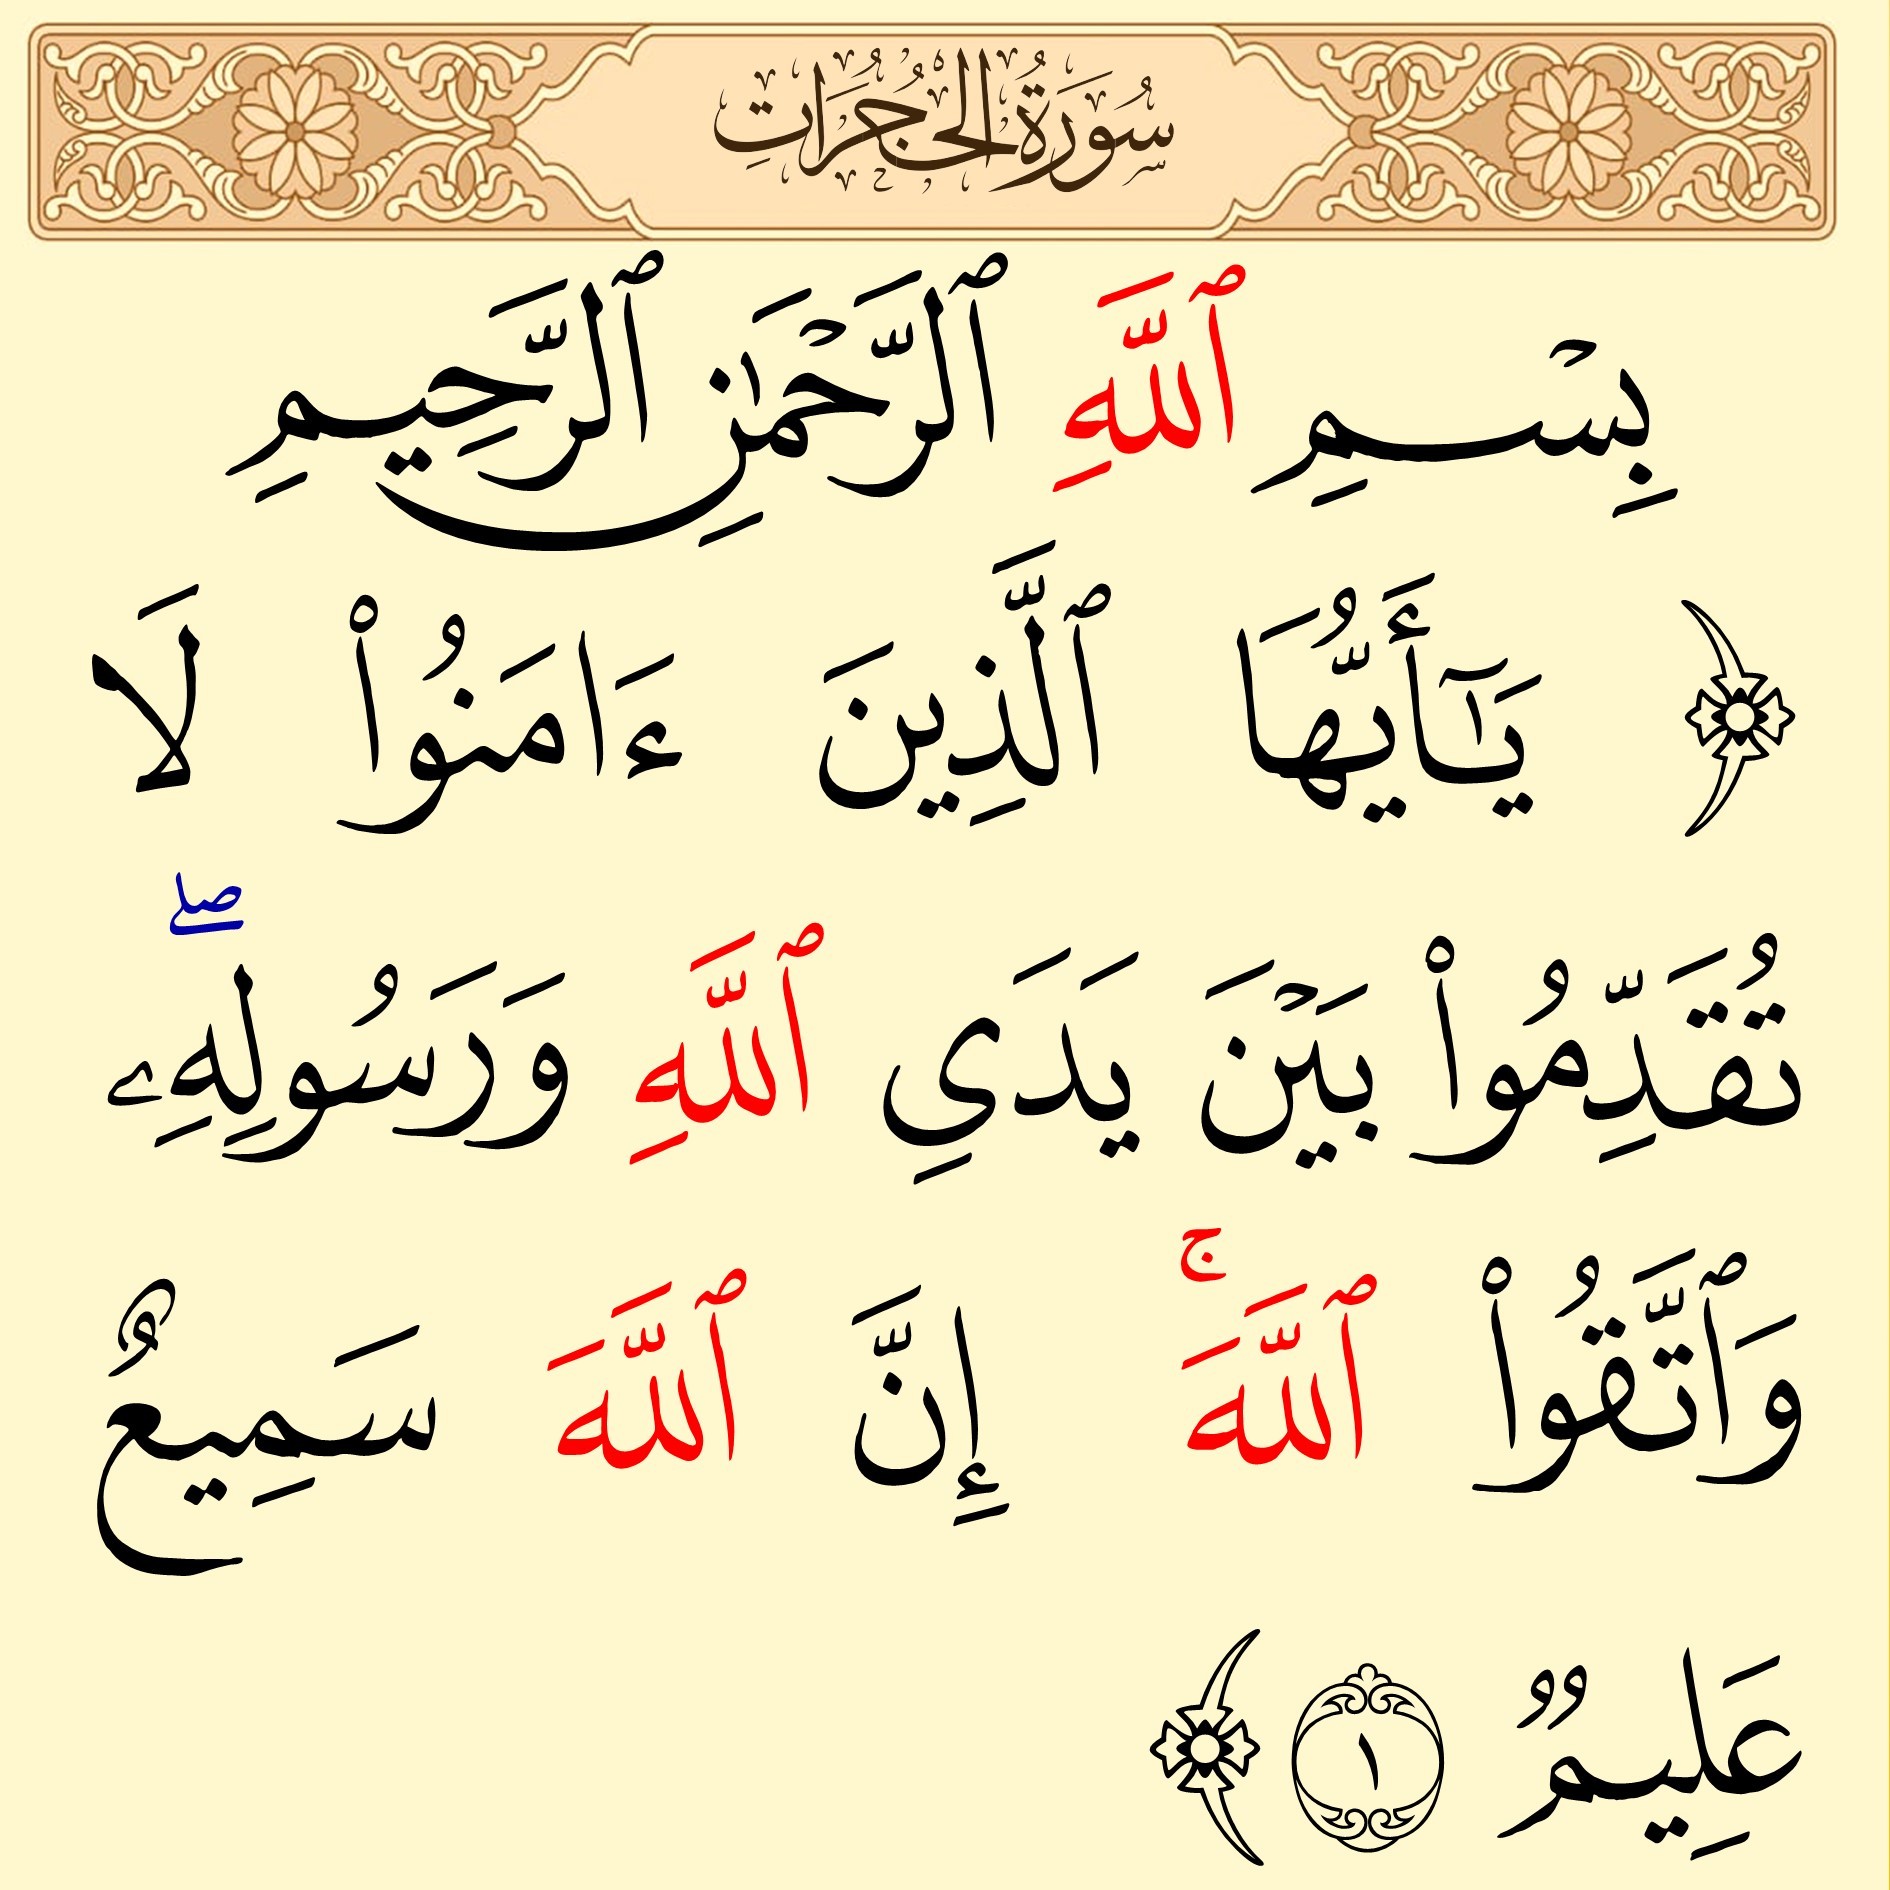 سُورَةُ الحُجُرَاتِ
بِسۡمِ ٱللَّهِ ٱلرَّحۡمَٰنِ ٱلرَّحِيمِ
﴿ يَٰٓأَيُّهَا ٱلَّذِينَ ءَامَنُواْ لَا
تُقَدِّمُواْ بَيۡنَ يَدَيِ ٱللَّهِ وَرَسُولِهِۦۖ
وَٱتَّقُواْ ٱللَّهَۚ إِنَّ ٱللَّهَ سَمِيعٌ
عَلِيمٞ ١ ﴾